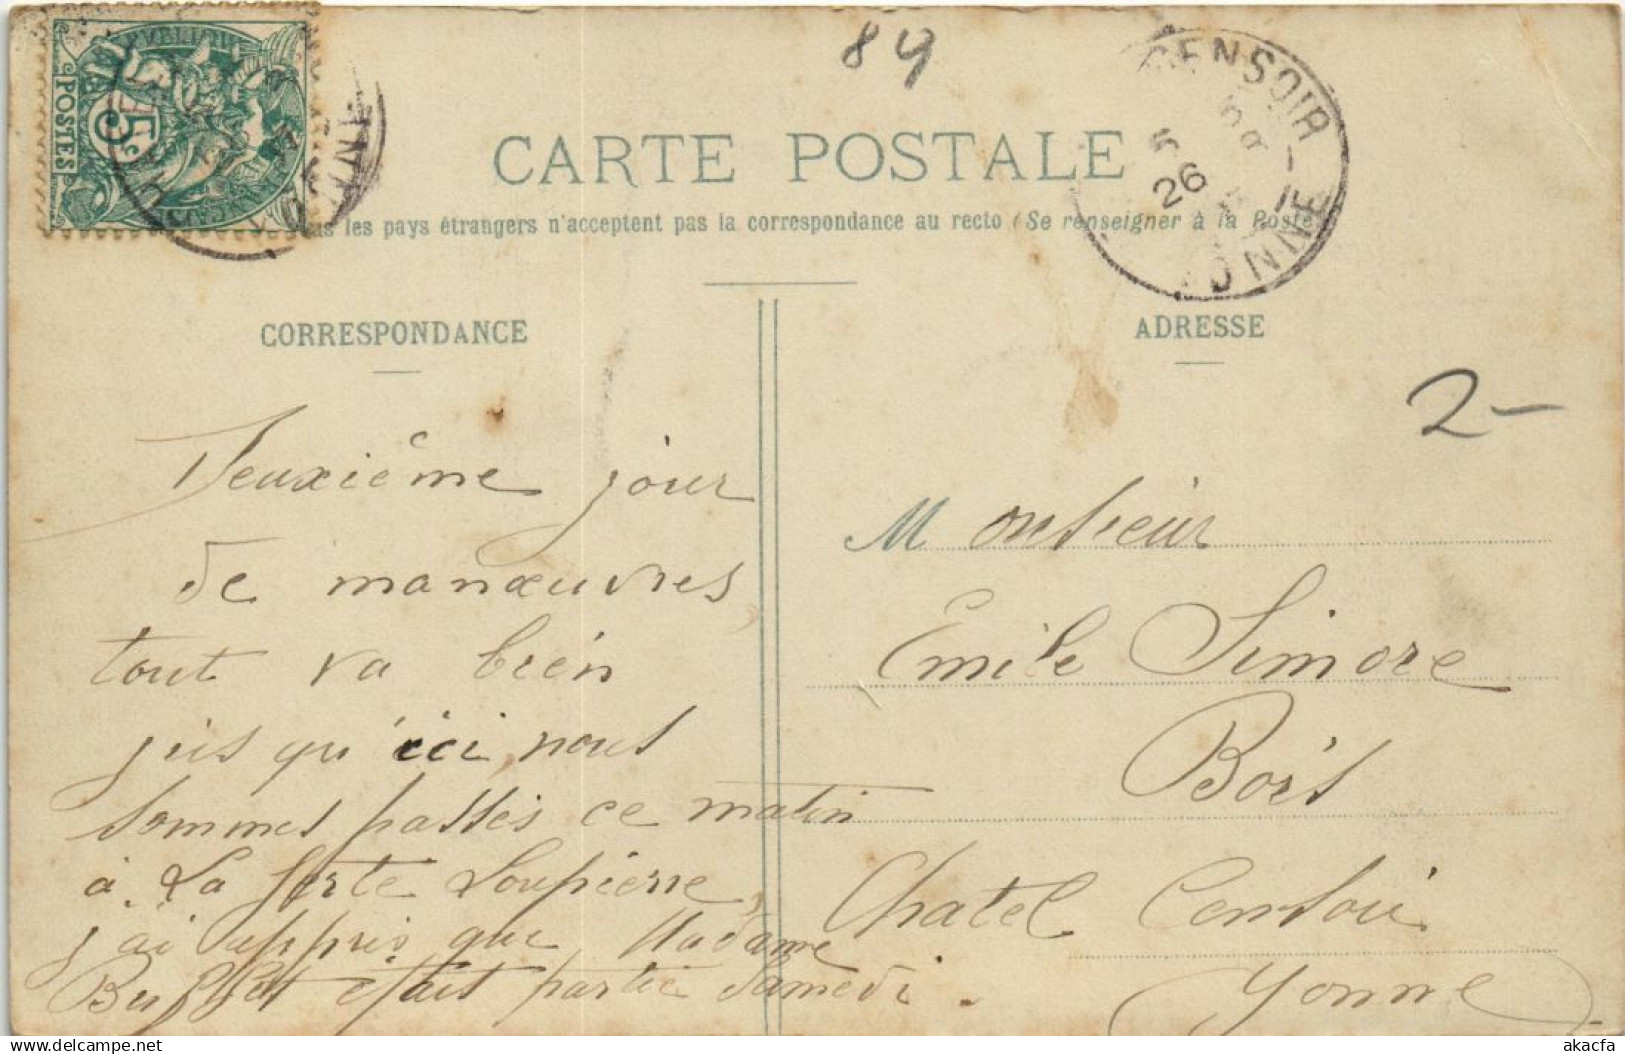 84
POSTES
5c
CENSOIR
5
26
YONNE
CARTE POSTALE
les pays étrangers n'acceptent pas la correspondance au recto (Se renseigner à la Poste)
CORRESPONDANCE
ADRESSE
2-
Deuxième jour
de manœuvres,
tout va bien
jus qu'ici, nous
sommes passés ce matin
à La ferté Loupière,
j'ai appris que Madame
Buffet était partie Samedi.
Monsieur
Emile Simore
Bois
Chatel Censoir
Yonne
akacfa
delcampe.net